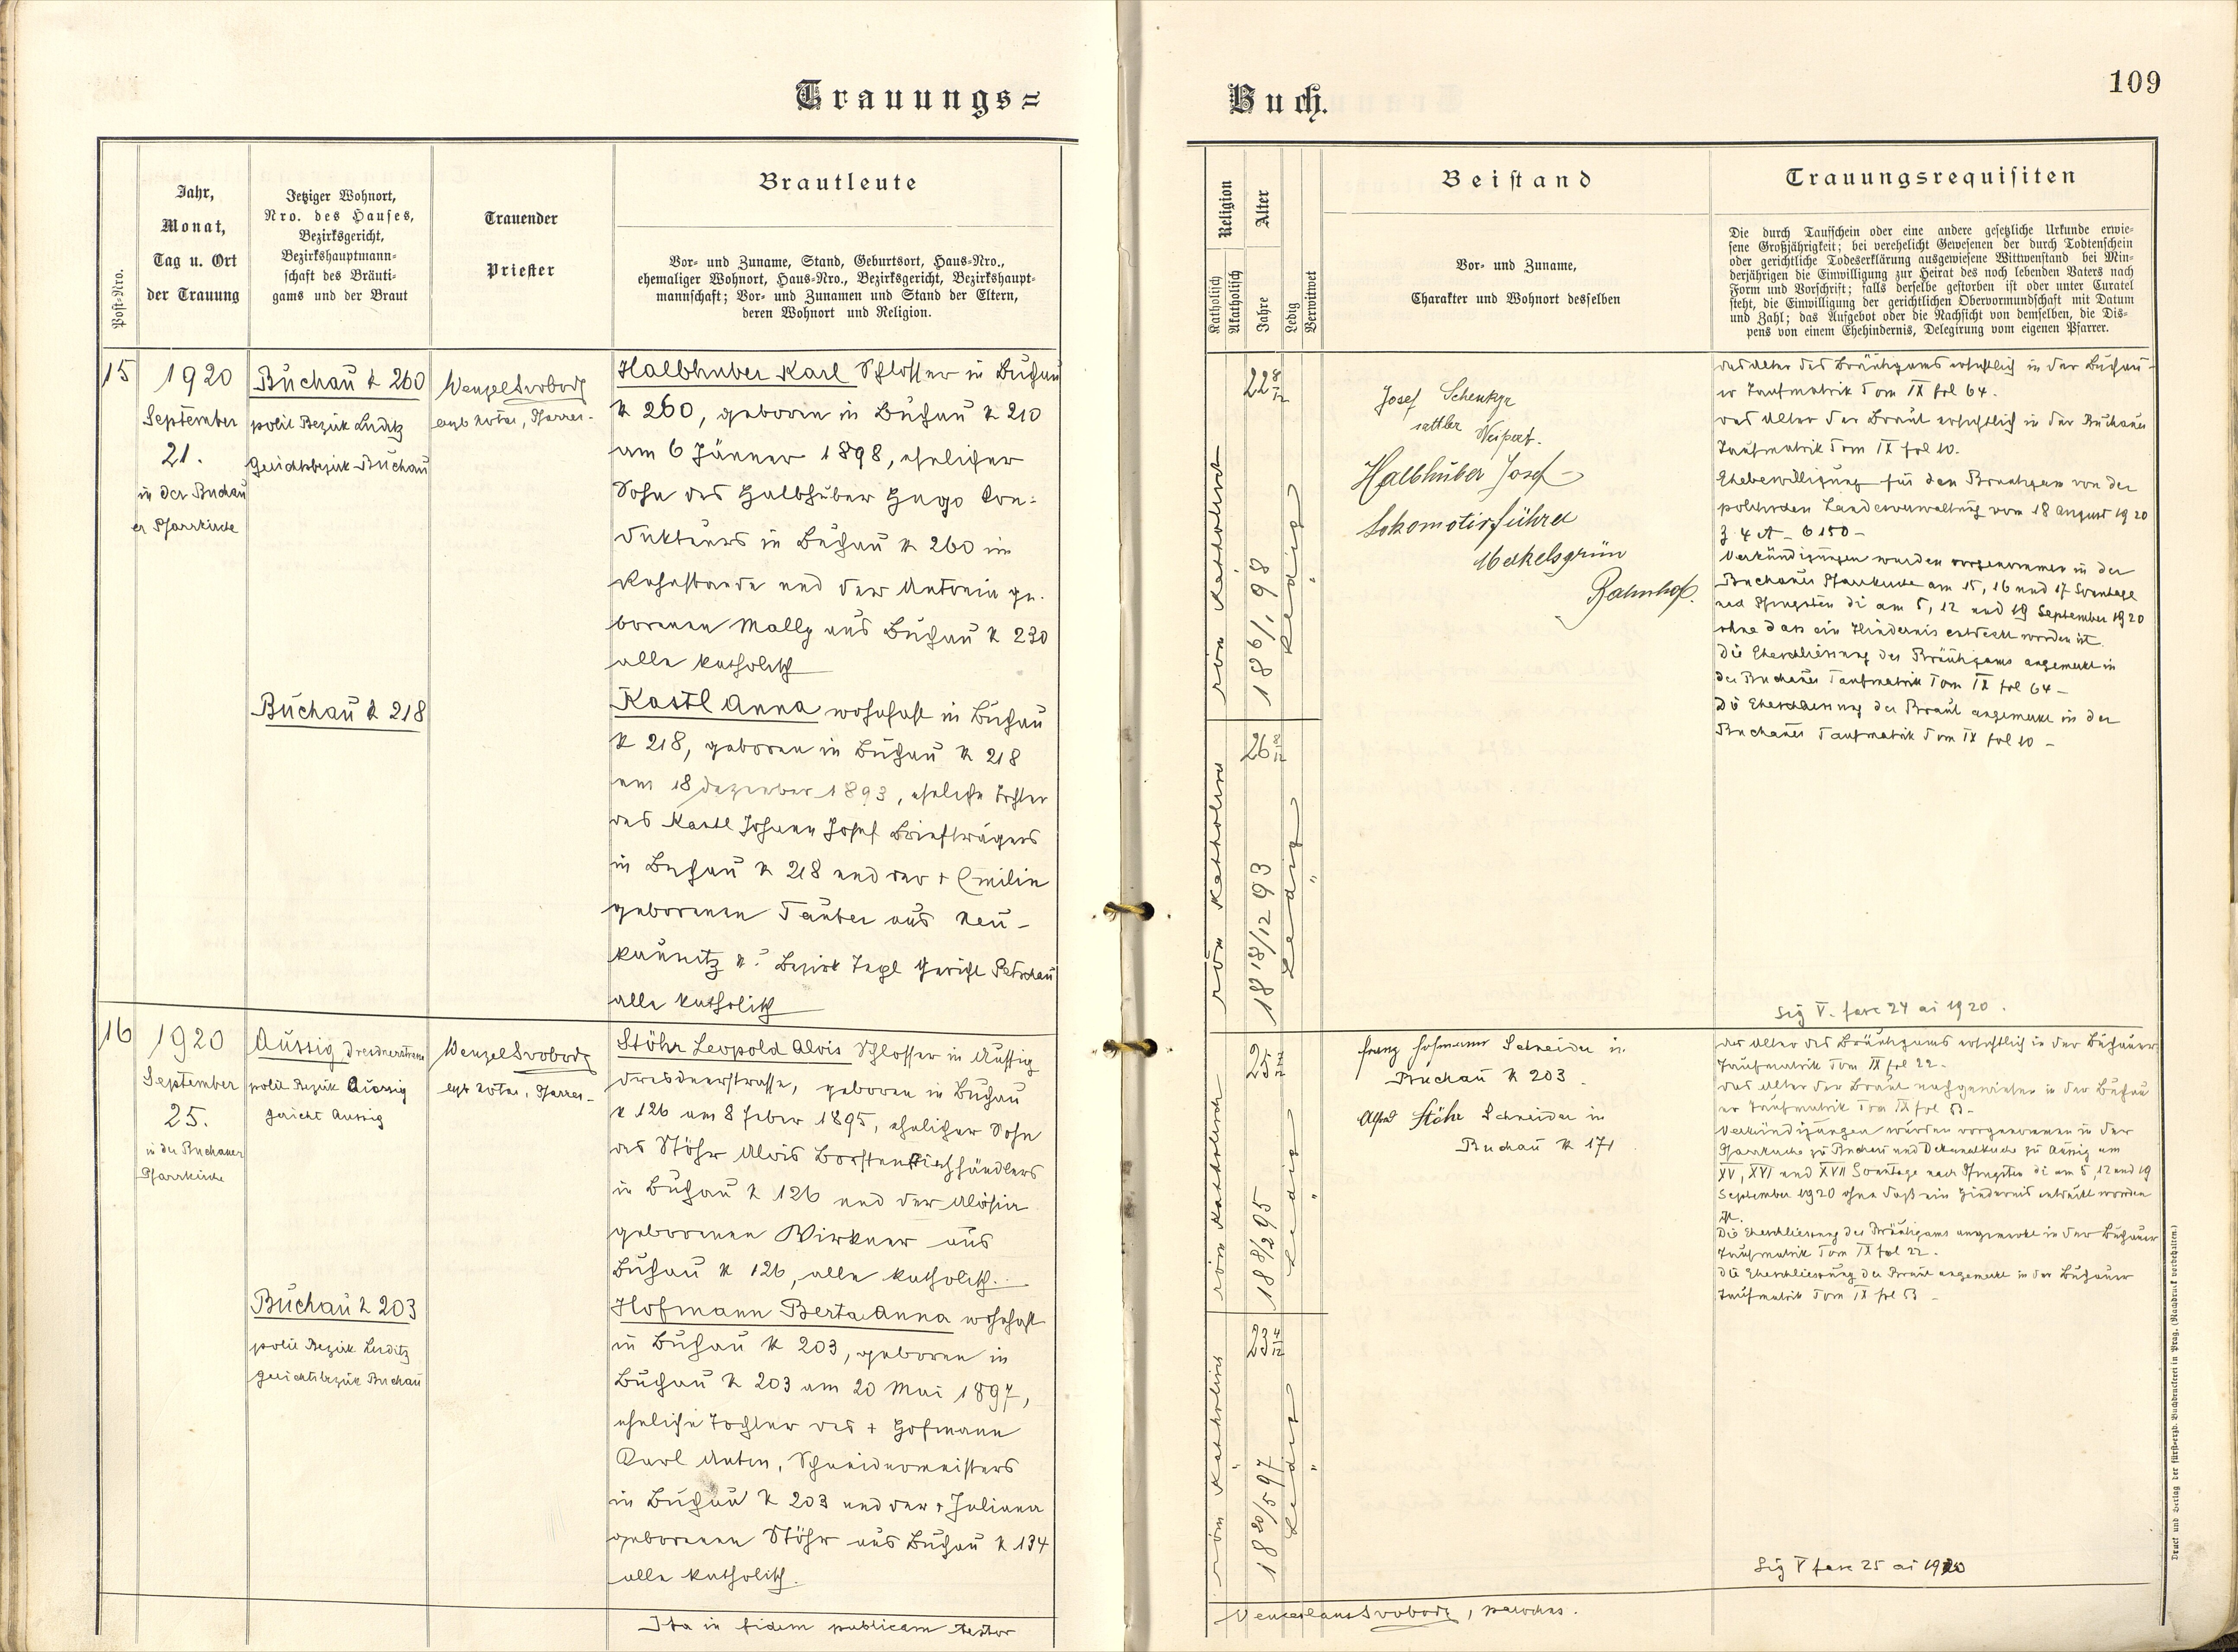 Trauungs=
Jahr,
Monat,
Tag u. Ort
der Trauung
Jetziger Wohnort,
Nro. des Hauses,
Bezirksgericht,
Bezirkshauptmann-
schaft des Bräuti-
gams und der Braut
Trauender
Priester
Brautleute
Vor- und Zuname, Stand, Geburtsort, Haus-Nro.,
ehemaliger Wohnort, Haus-Nro., Bezirksgericht, Bezirkshaupt-
mannschaft; Vor- und Zunamen und Stand der Eltern,
deren Wohnort und Religion.
Post-Nro.
15
1920
September
21.
in der Buchau
er Pfarrkirche
Buchau N 260
polit Bezirk Luditz
Gerichtsbezirk Buchau
Wenzel Svoboda
erzb Notar, Pfarrer.
Halbhuber Karl Schlosser in Buchau
N 260, geboren in Buchau N 210
am 6 Jänner 1898, ehelicher
Sohn des Halbhuber Hugo Kon-
dukteurs in Buchau N 260 im
Ruhestande und der Antonia ge-
borenen Mally aus Buchau N 230
alle katholisch
Buchau N 218
Kastl Anna wohnhaft in Buchau
N 218, geboren in Buchau N 218
am 18 Dezember 1893, eheliche Tochter
des Kastl Johann Josef Briefträgers
in Buchau N 218 und der + Emilie
geborenen Tauber aus Neu-
kaunitz N ? Bezirk Tepl Gericht Petschau
alle katholisch
16
1920
September
25.
in der Buchauer
Pfarrkirche
Aussig Dresdnerstrasse
polit Bezirk Aussig
Gericht Aussig
Wenzel Svoboda
erzb Notar, Pfarrer.
Stöhr Leopold Alois Schlosser in Aussig
Dresdnerstrasse, geboren in Buchau
N 126 am 8 Feber 1895, ehelicher Sohn
des Stöhr Alois Borstenviehhändlers
in Buchau N 126 und der Aloisia
geborenen Wirkner aus
Buchau N 126, alle katholisch.
Buchau N 203
polit Bezirk Luditz
Gerichtsbezirk Buchau
Hofmann Berta Anna wohnhaft
in Buchau N 203, geboren in
Buchau N 203 am 20 Mai 1897,
eheliche Tochter des + Hofmann
Karl Anton, Schneidermeisters
in Buchau N 203 und der + Juliana
geborenen Stöhr aus Buchau N 134
alle katholisch.
Ita in fidem publicam testor
Buch.
109
Religion
Katholisch
Akatholisch
Alter
Jahre
Ledig
Verwitwet
Beistand
Vor- und Zuname,
Charakter und Wohnort desselben
Trauungsrequisiten
Die durch Taufschein oder eine andere gesetzliche Urkunde erwie-
sene Großjährigkeit; bei verehelicht Gewesenen der durch Todtenschein
oder gerichtliche Todeserklärung ausgewiesene Wittwenstand bei Min-
derjährigen die Einwilligung zur Heirat des noch lebenden Vaters nach
Form und Vorschrift; falls derselbe gestorben ist oder unter Curatel
steht, die Einwilligung der gerichtlichen Obervormundschaft mit Datum
und Zahl; das Aufgebot oder die Nachsicht von demselben, die Dis-
pens von einem Ehehindernis, Delegirung vom eigenen Pfarrer.
röm katholisch
22 8/12
18 6/1 98
Ledig
"
Josef
sattler Weipert.
Halbhuber Josef
Lokomotivführer
Merkelsgrün
Bahnhof.
das Alter des Bräutigams ersichtlich in der Buchau-
er Taufmatrik Tom IX fol 64.
das Alter der Braut ersichtlich in der Buchauer
Taufmatrik Tom IX fol 10.
Ehebewilligung für den Bräutigam von der
politischen Landesverwaltung vom 18 August 1920
Z 4 A - 6150 -
Verkündigungen wurden vorgenommen in der
Buchauer Pfarrkirche am 15, 16 und 17 Sonntage
nach Pfingsten di am 5, 12 und 19 September 1920
ohne dass ein Hindernis entdeckt worden ist.
Die Eheschliessung des Bräutigams angemerkt in
der Buchauer Taufmatrik Tom IX fol 64 -
Die Eheschliessung der Braut angemerkt in der
Buchauer Taufmatrik Tom IX fol 10 -
röm katholisch
26 8/12
18 18/12 93
Ledig
"
Sig V. fasc 24 ai 1920.
röm katholisch
25 7/12
18 8/2 95
Ledig
"
Franz Hofmann Schneider in
Buchau N 203.
Alfred Stöhr Schneider in
Buchau N 171
das Alter des Bräutigams ersichtlich in der Buchauer
Taufmatrik Tom IX fol 22 -
das Alter der Braut nachgewiesen in der Buchau
er Taufmatrik Tom IX fol 53 -
Verkündigungen wurden vorgenommen in der
Pfarrkirche zu Buchau und Dekanalkirche zu Aussig am
XV, XVI und XVII Sonntage nach Pfingsten di am 5, 12 und 19
September 1920 ohne daß ein Hindernis entdeckt worden
ist.
Die Eheschliessung des Bräutigams angemerkt in der Buchauer
Taufmatrik Tom IX fol 22 -
Die Eheschliessung der Braut angemerkt in der Buchauer
Taufmatrik Tom IX fol 53 -
röm katholisch
23 4/12
18 20/5 97
Ledig
"
Sig V fasc 25 ai 1920
Venceslaus Svoboda, parochus.
Druck und Verlag der fürst-erzb. Buchdruckerei in Prag. (Nachdruck vorbehalten.)